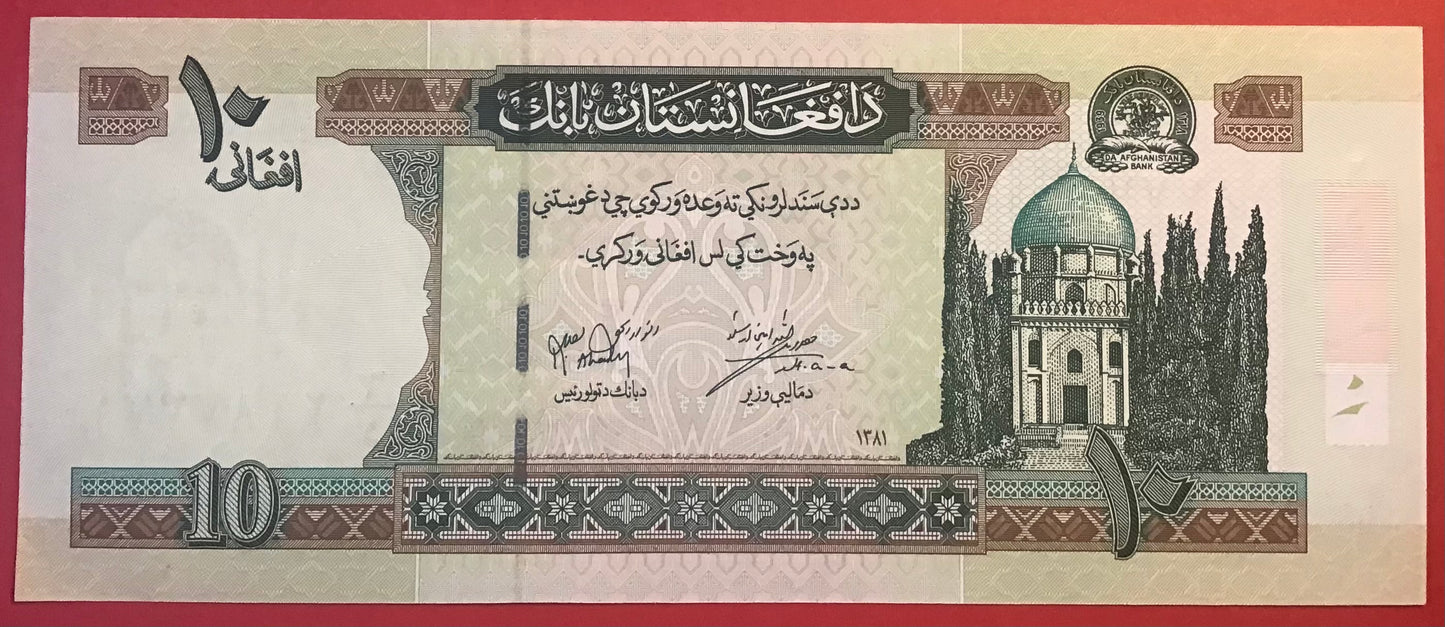 د افغانستان بانك
۱۰
افغانۍ
DA AFGHANISTAN
BANK
ددې سَند لرونکي ته وَعده وَرکوي چې د غوښتنې
په وخت کې لس افغانۍ وَرکړي۔
د بانك د ټولو رئیس
د مالیې وزیر
۱۳۸۱
10
۱۰